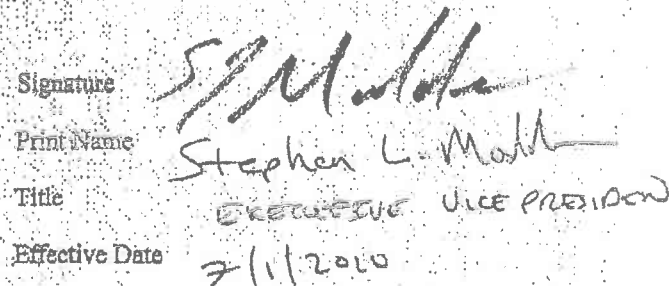 Signature
Print Name Stephen L.
Title EXECUTIVE VICE PRESIDEN
Effective Date 7/1/2010